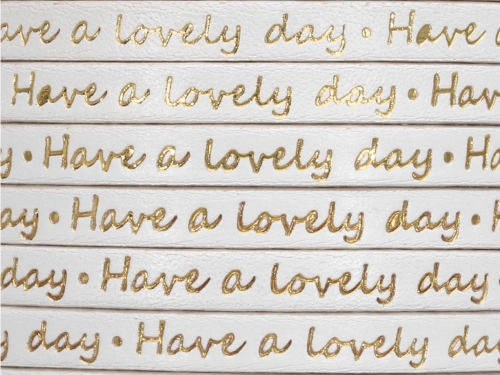 ave a lovely day • Have a
Have a lovely day • Hav
y • Have a lovely day • Ha
ay • Have a lovely day • H
day • Have a lovely day
y day • Have a lovely day